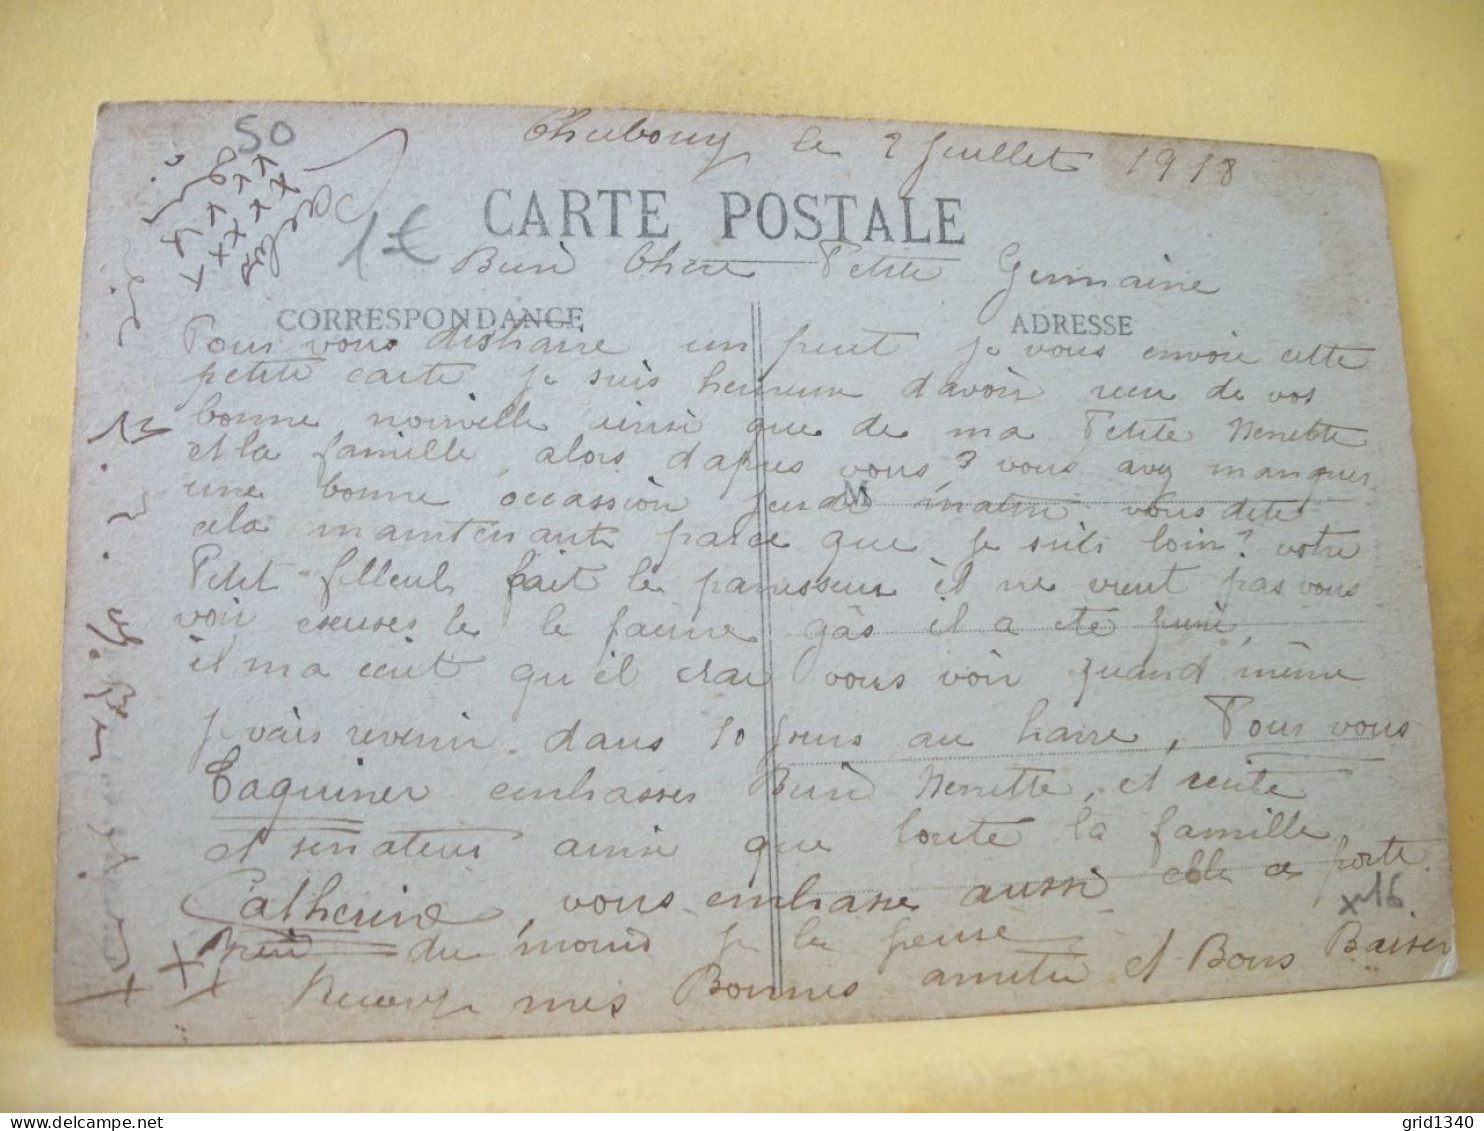 50
le 2 Juillet 1918
1€
CARTE POSTALE
Bien Chère Petite Germaine
CORRESPONDANCE
ADRESSE
Pour vous distraire un peut je vous envoie cette
petite carte je suis heureux d'avoir recu de vos
bonne nouvelle ainsi que de ma Petite Nenette
et la famille, alors d'après vous? vous avez manquer
une bonne occassion jeudi matin vous dite
M
cela maintenant parce que je suis loin? votre
Petit filleul fait le paresseux il ne vient pas vous
voir excuses le le jeune gâs il a été puni,
il ma écrit qu'il irai vous voir quand même
je vais revenir dans 10 jours au havre, Pour vous
Taquiner embrasser Bien Nenette, et
et senateur ainsi que toute la famille
Catherine, vous embrasse aussi elle ce porte
Bien du moins je le pense
x 16
Recevez mes Bonnes amitié et Bons Baiser